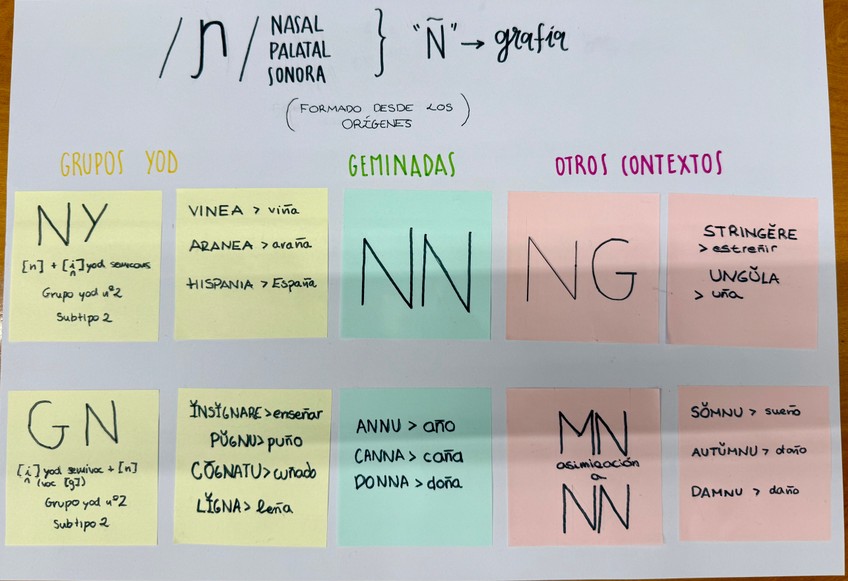 /ɲ/ NASAL
PALATAL
SONORA
} "Ñ" → grafía
(FORMADO DESDE LOS
ORÍGENES)
GRUPOS YOD
NY
[n] + [i̯] yod semicons
Grupo yod nº2
Subtipo 2
VINEA > viña
ARANEA > araña
HISPANIA > España
GN
[i̯] yod semivoc + [n]
(voc [g])
Grupo yod nº2
Subtipo 2
ĬNSIGNARE > enseñar
PŬGNU > puño
COGNATU > cuñado
LĬGNA > leña
GEMINADAS
NN
ANNU > año
CANNA > caña
DONNA > doña
OTROS CONTEXTOS
NG
STRINGĔRE
> estreñir
UNGŬLA
> uña
MN
asimización
a
NN
SŎMNU > sueño
AUTŬMNU > otoño
DAMNU > daño